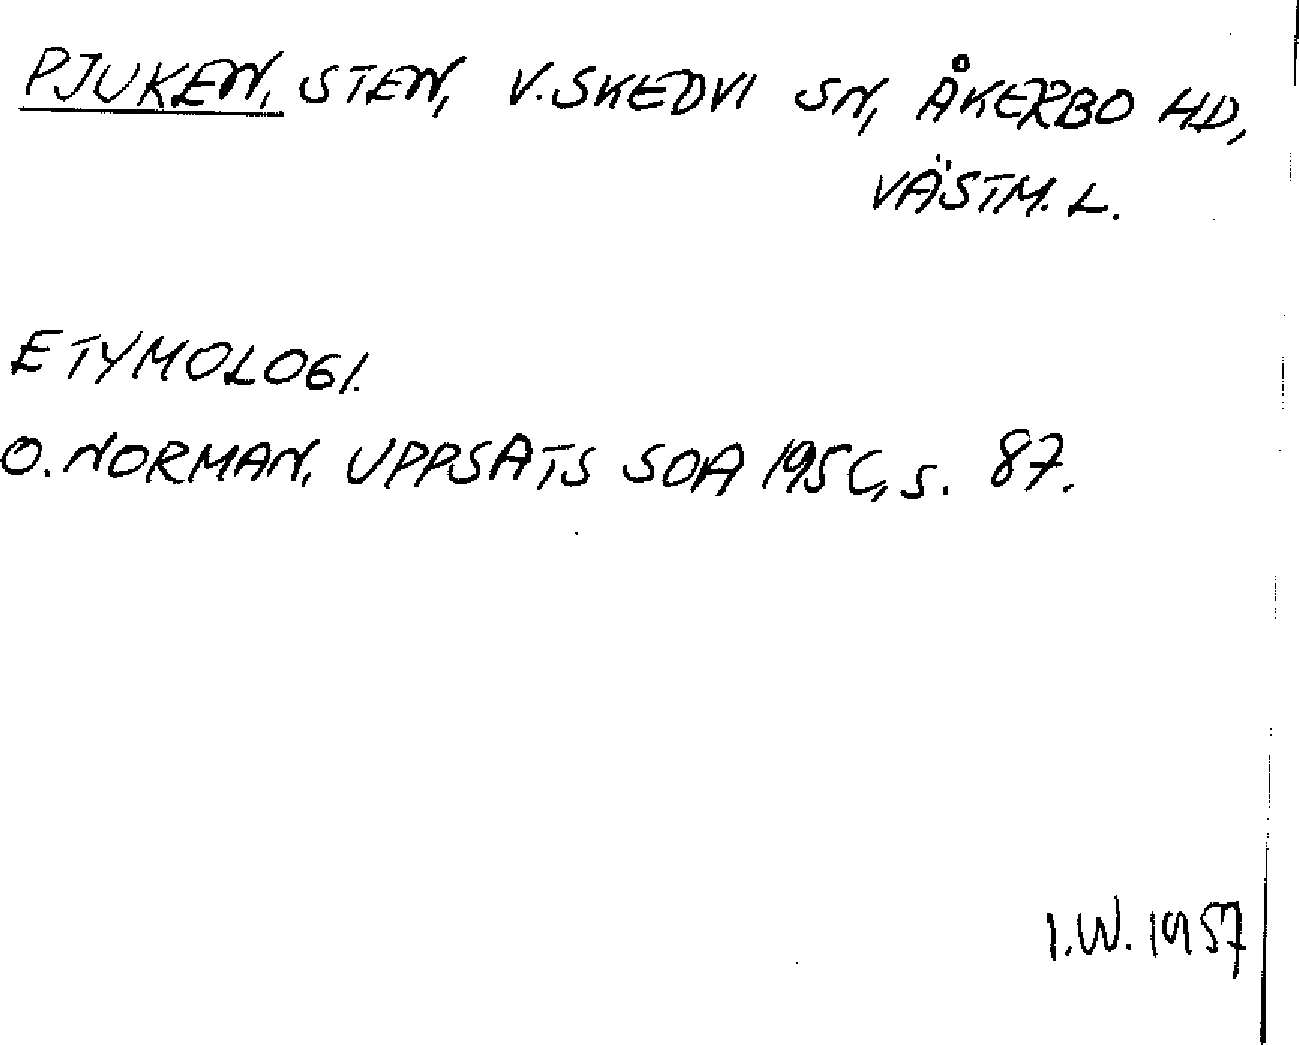 PJUKEN, STEN, V. SKEDVI SN, ÅKERBO HD,
VÄSTM. L.
ETYMOLOGI.
O. NORMAN. UPPSATS SOA 195C, s. 87.
I.W. 1957